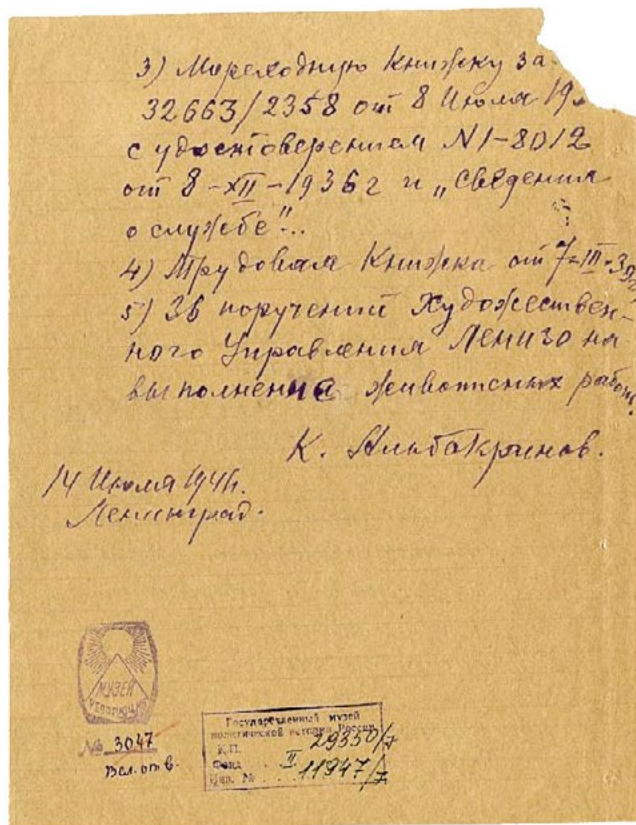 3) Мореходную Книжку за
32663/2358 от 8 Июля 19
с удостоверением N1-8012
от 8-XII-1936 г и „Сведения
о службе"...
4) Трудовая Книжка от 7-III-39г
5) 36 поручений Художествен-
ного Управления ЛЕНИЗО на
выполнение живописных работ.
К. Альбокринов.
14 Июля 1941.
Ленинград.
МУЗЕЙ
РЕВОЛЮЦИИ
№ 3047
Всп. от в.
Государственный музей
политической истории России
К.П. 29350/7
Фонд II
Инв. № 11947/7